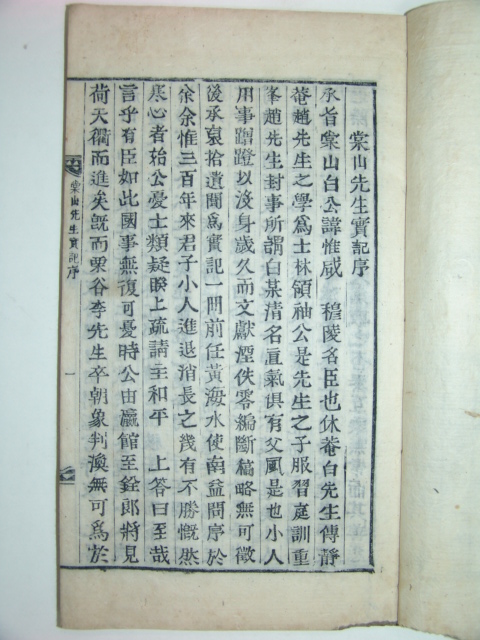 棠山先生實記序
承旨棠山白公諱惟咸 穆陵名臣也休菴白先生傳靜
菴趙先生之學爲士林領袖公是先生之子服習庭訓重
峯趙先生封事所謂白某清名直氣俱有父風是也小人
用事蹭蹬以沒身歲久而文獻湮佚零編斷藁略無可徵
後承裒拾遺聞爲實記一冊前任黃海水使南益問序於
余余惟三百年來君子小人進退消長之幾有不勝慨然
寒心者始公憂士類疑睽上疏請主和平 上答曰至哉
言乎有臣如此國事無復可憂時公由瀛館至銓郎將見
荷天衢而進矣旣而栗谷李先生卒朝象判渙無可爲於
棠山先生實記序
一